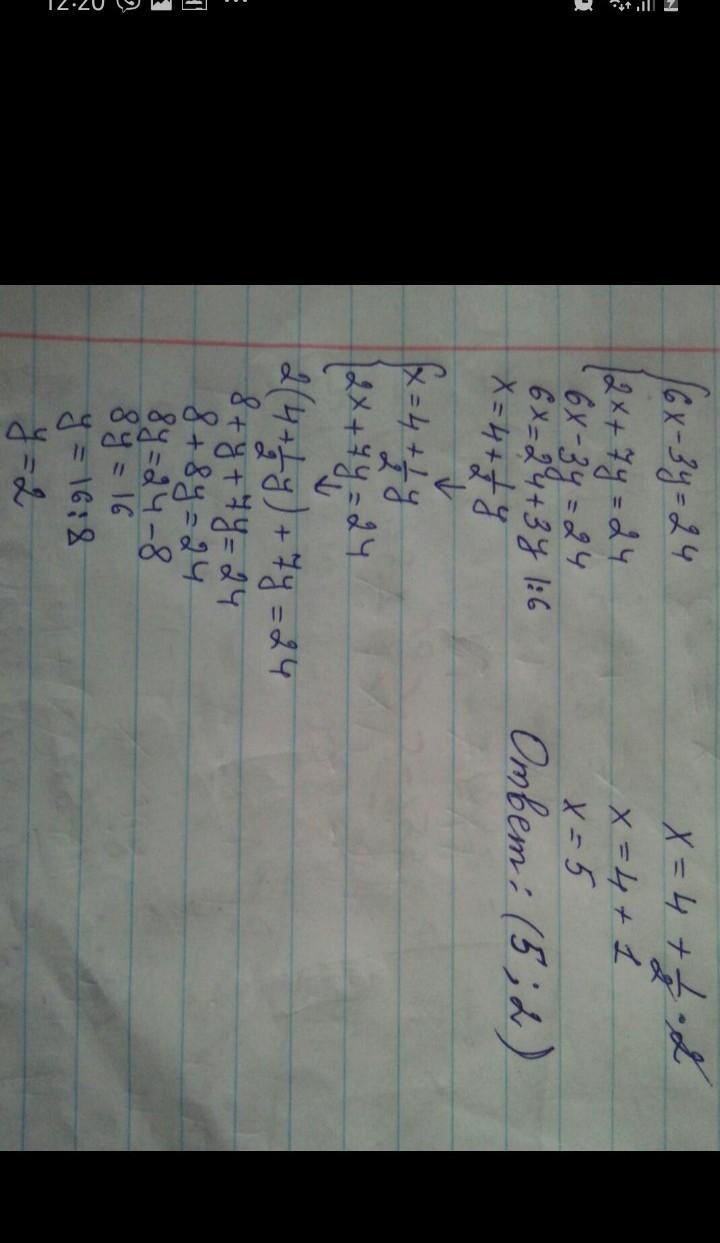 12:20
{6x - 3y = 24
{2x + 7y = 24
6x - 3y = 24
6x = 24 + 3y |:6
x = 4 + 1/2 y
↓
{x = 4 + 1/2 y
{2x + 7y = 24
↓
2(4 + 1/2 y) + 7y = 24
8 + y + 7y = 24
8 + 8y = 24
8y = 24 - 8
8y = 16
y = 16 : 8
y = 2
x = 4 + 1/2 · 2
x = 4 + 1
x = 5
Ответ: (5 ; 2)